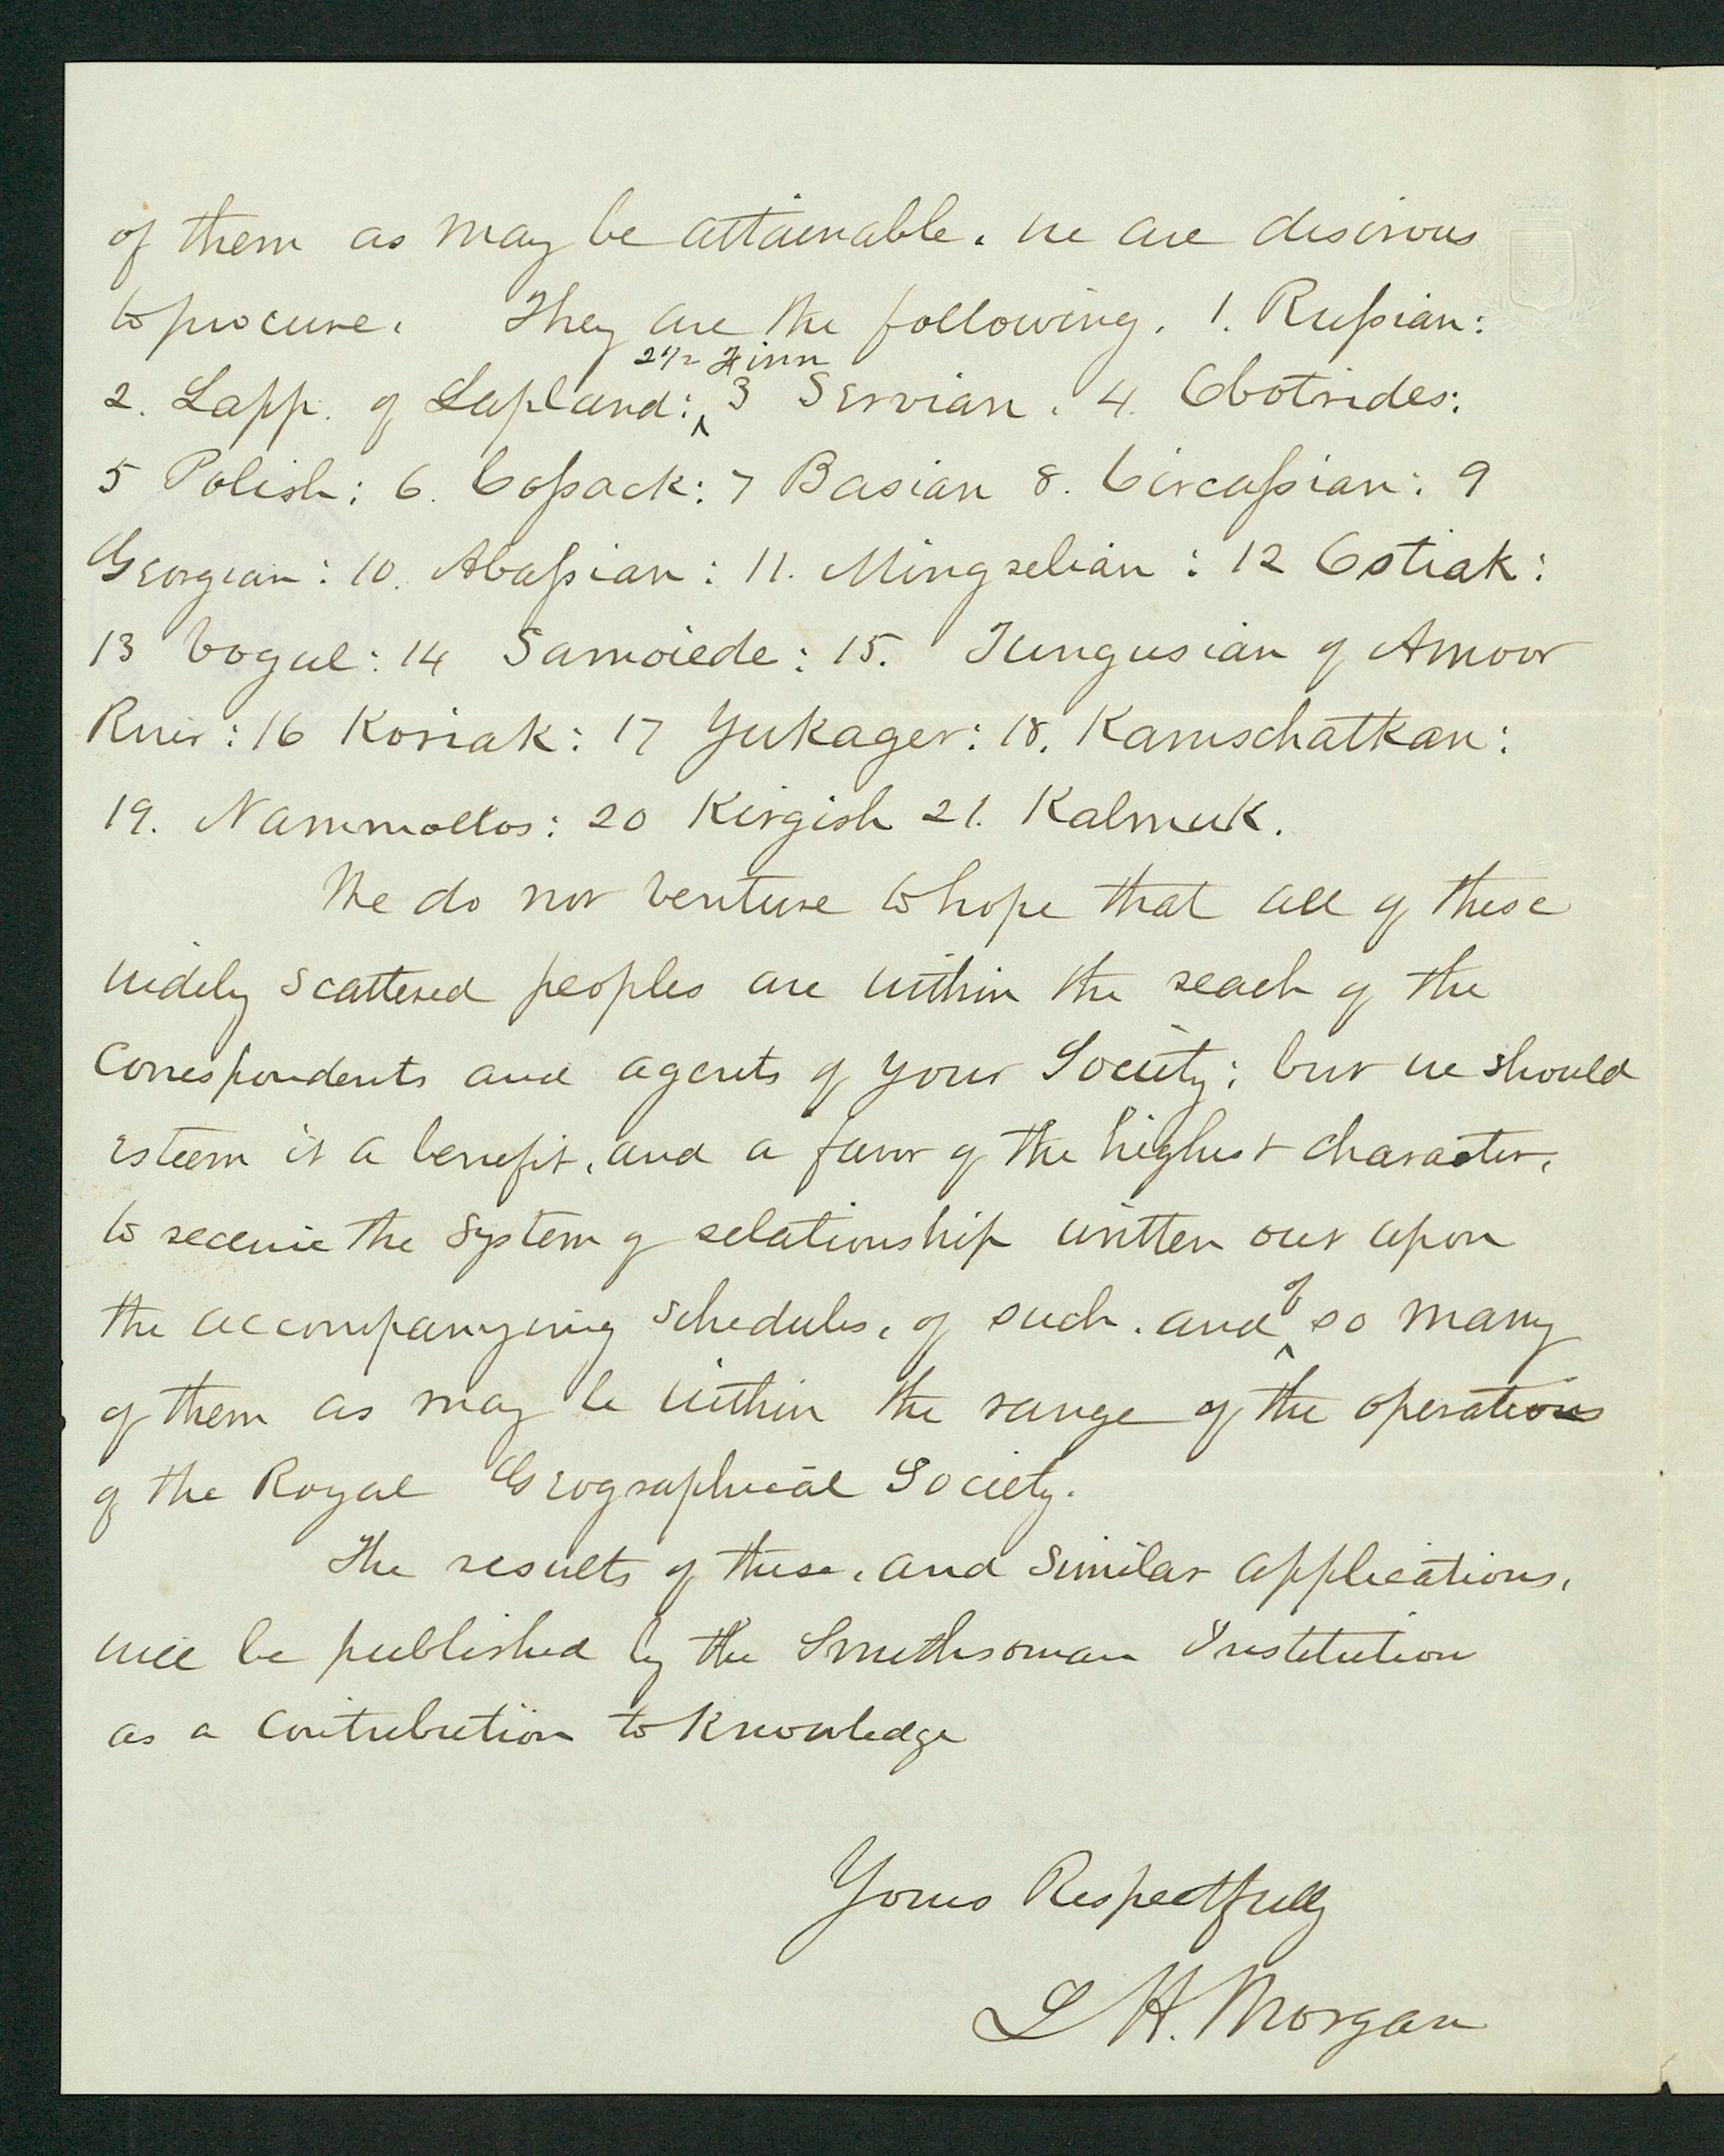 of them as may be attainable, we are desirous
to procure. They are the following. 1. Russian:
2 1/2 Finn
2. Lapp. of Lapland: 3 Servian. 4. Obotrides:
5 Polish: 6. Cossack: 7 Basian 8. Circassian: 9
Georgian: 10. Abassian: 11. Mingrelian: 12 Ostiak:
13 Vogul: 14 Samoiede: 15. Tungusian of Amoor
River: 16 Koriak: 17 Yukager: 18. Kamschatkan:
19. Nammollos: 20 Kirgish 21. Kalmuk.
We do not venture to hope that all of these
widely scattered peoples are within the reach of the
Correspondents and agents of your Society; but we should
esteem it a benefit, and a favor of the highest character,
to receive the system of relationship written out upon
the accompanying schedules, of such, and of so many
of them as may be within the range of the operations
of the Royal Geographical Society.
The results of these, and similar applications,
will be published by the Smithsonian Institution
as a Contribution to Knowledge
Yours Respectfully
L H. Morgan